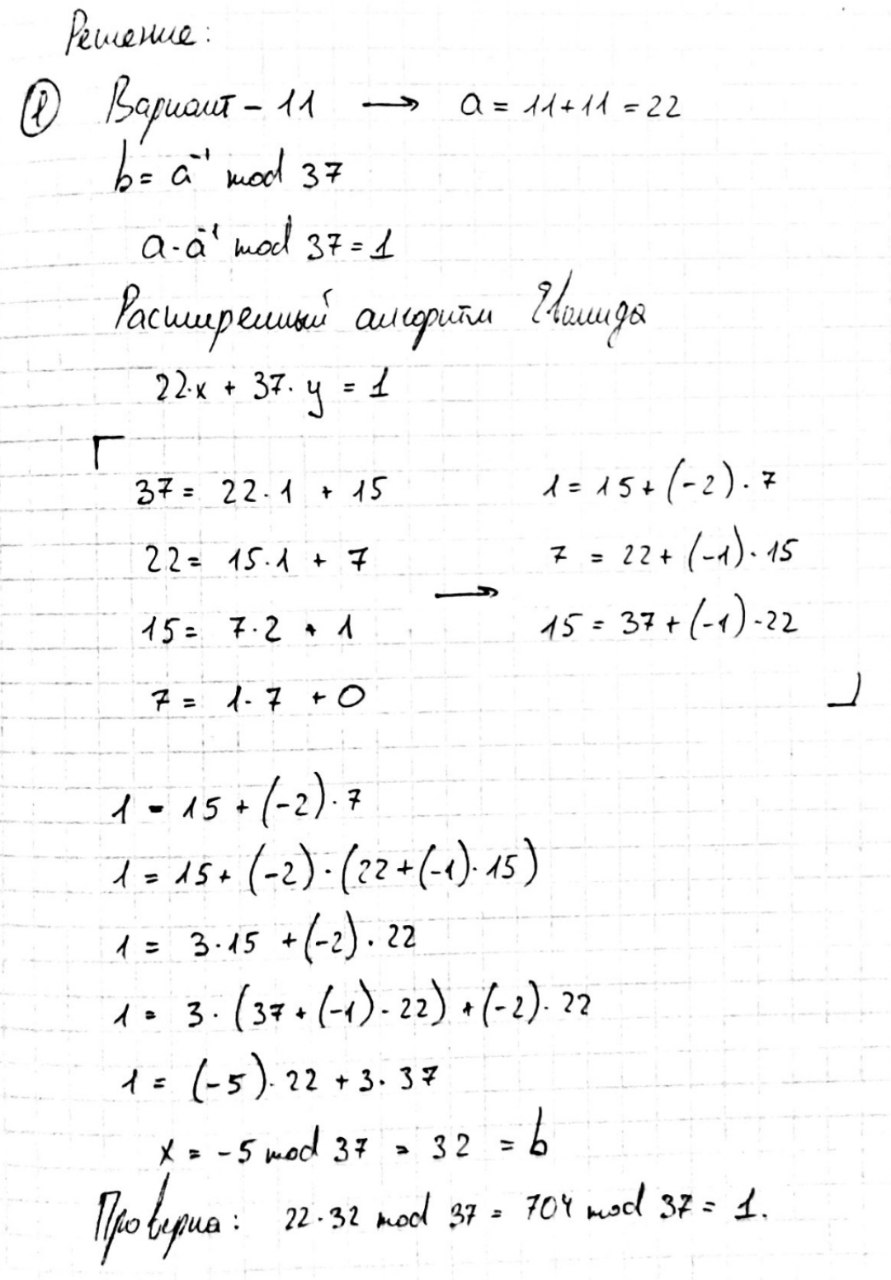 Решение:
① Вариант - 11 → a = 11+11 = 22
b = a⁻¹ mod 37
a·a⁻¹ mod 37 = 1
Расширенный алгоритм Евклида
22·x + 37·y = 1
37 = 22·1 + 15
22 = 15·1 + 7
15 = 7·2 + 1
7 = 1·7 + 0
→
1 = 15+(-2)·7
7 = 22+(-1)·15
15 = 37+(-1)·22
1 = 15+(-2)·7
1 = 15+(-2)·(22+(-1)·15)
1 = 3·15 +(-2)·22
1 = 3·(37+(-1)·22)+(-2)·22
1 = (-5)·22 + 3·37
x = -5 mod 37 = 32 = b
Проверка: 22·32 mod 37 = 704 mod 37 = 1.